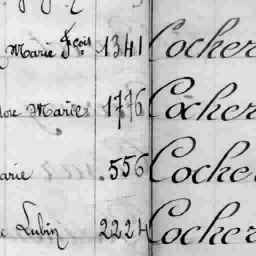 Marie Fçois 1341 Cocher
dore Marie 1776 Cocher
arie 556 Cocher
Lubin 2224 Cocher